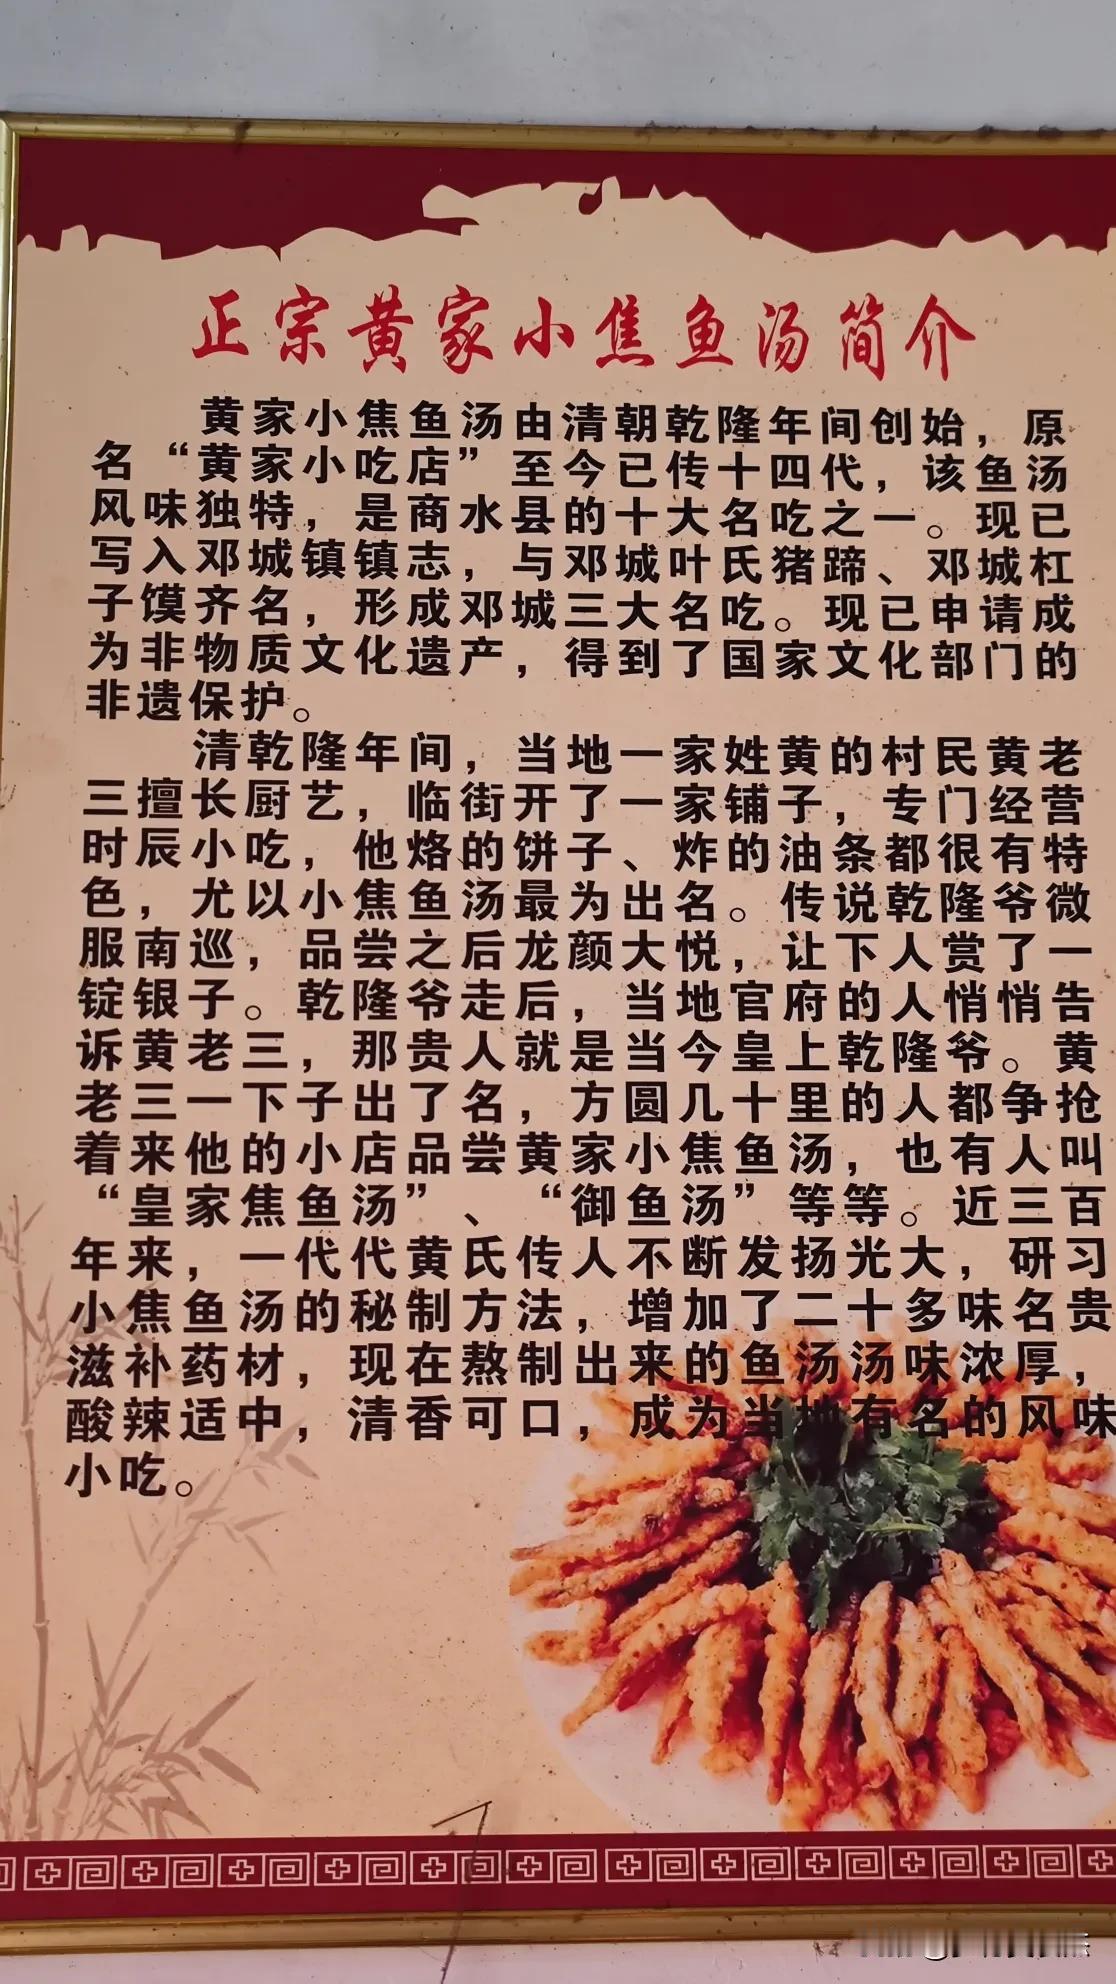 正宗黄家小焦鱼汤简介
黄家小焦鱼汤由清朝乾隆年间创始，原
名“黄家小吃店”至今已传十四代，该鱼汤
风味独特，是商水县的十大名吃之一。现已
写入邓城镇镇志，与邓城叶氏猪蹄、邓城杠
子馍齐名，形成邓城三大名吃。现已申请成
为非物质文化遗产，得到了国家文化部门的
非遗保护。
清乾隆年间，当地一家姓黄的村民黄老
三擅长厨艺，临街开了一家铺子，专门经营
时辰小吃，他烙的饼子、炸的油条都很有特
色，尤以小焦鱼汤最为出名。传说乾隆爷微
服南巡，品尝之后龙颜大悦，让下人赏了一
锭银子。乾隆爷走后，当地官府的人悄悄告
诉黄老三，那贵人就是当今皇上乾隆爷。黄
老三一下子出了名，方圆几十里的人都争抢
着来他的小店品尝黄家小焦鱼汤，也有人叫
“皇家焦鱼汤”、“御鱼汤”等等。近三百
年来，一代代黄氏传人不断发扬光大，研习
小焦鱼汤的秘制方法，增加了二十多味名贵
滋补药材，现在熬制出来的鱼汤汤味浓厚，
酸辣适中，清香可口，成为当地有名的风味
小吃。